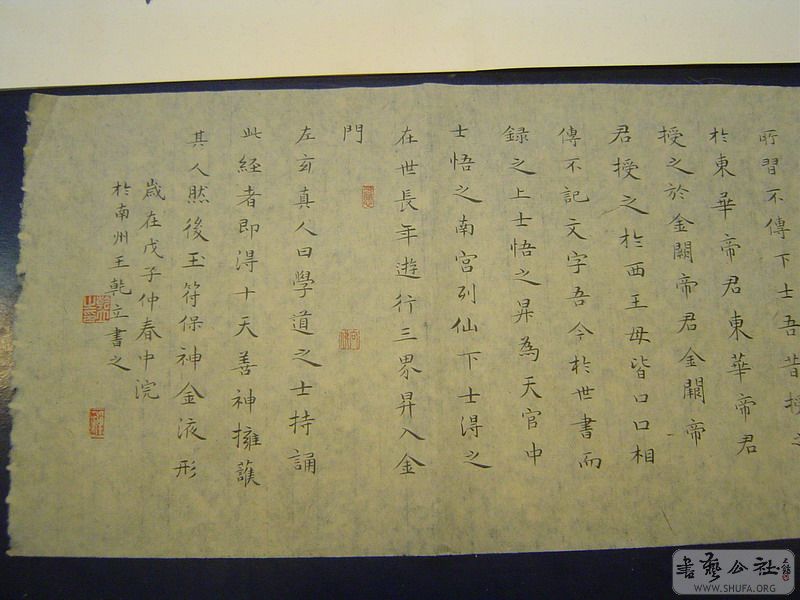 所習不傳下士吾昔授之
於東華帝君東華帝君
授之於金闕帝君金闕帝
君授之於西王母皆口口相
傳不記文字吾今於世書而
録之上士悟之昇為天官中
士悟之南宮列仙下士得之
在世長年遊行三界昇入金
門
左玄真人曰學道之士持誦
此経者即得十天善神擁護
其人然後玉符保神金液形
歲在戊子仲春中浣
於南州王乾立書之
書藝公社
WWW.SHUFA.ORG